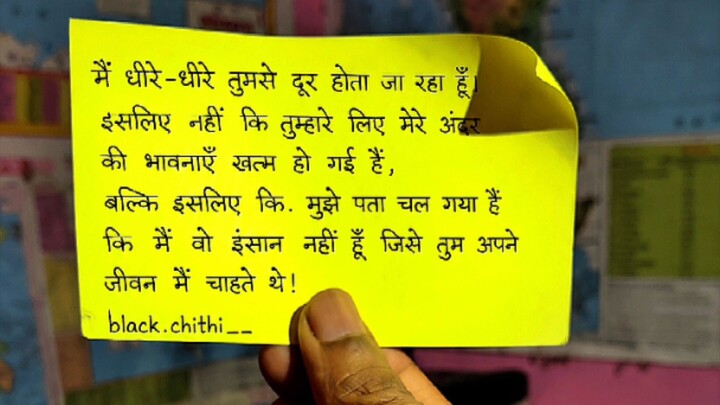 मैं धीरे-धीरे तुमसे दूर होता जा रहा हूँ।
इसलिए नहीं कि तुम्हारे लिए मेरे अंदर
की भावनाएँ खत्म हो गई हैं,
बल्कि इसलिए कि. मुझे पता चल गया हैं
कि मैं वो इंसान नहीं हूँ जिसे तुम अपने
जीवन मैं चाहते थे!
black.chithi__